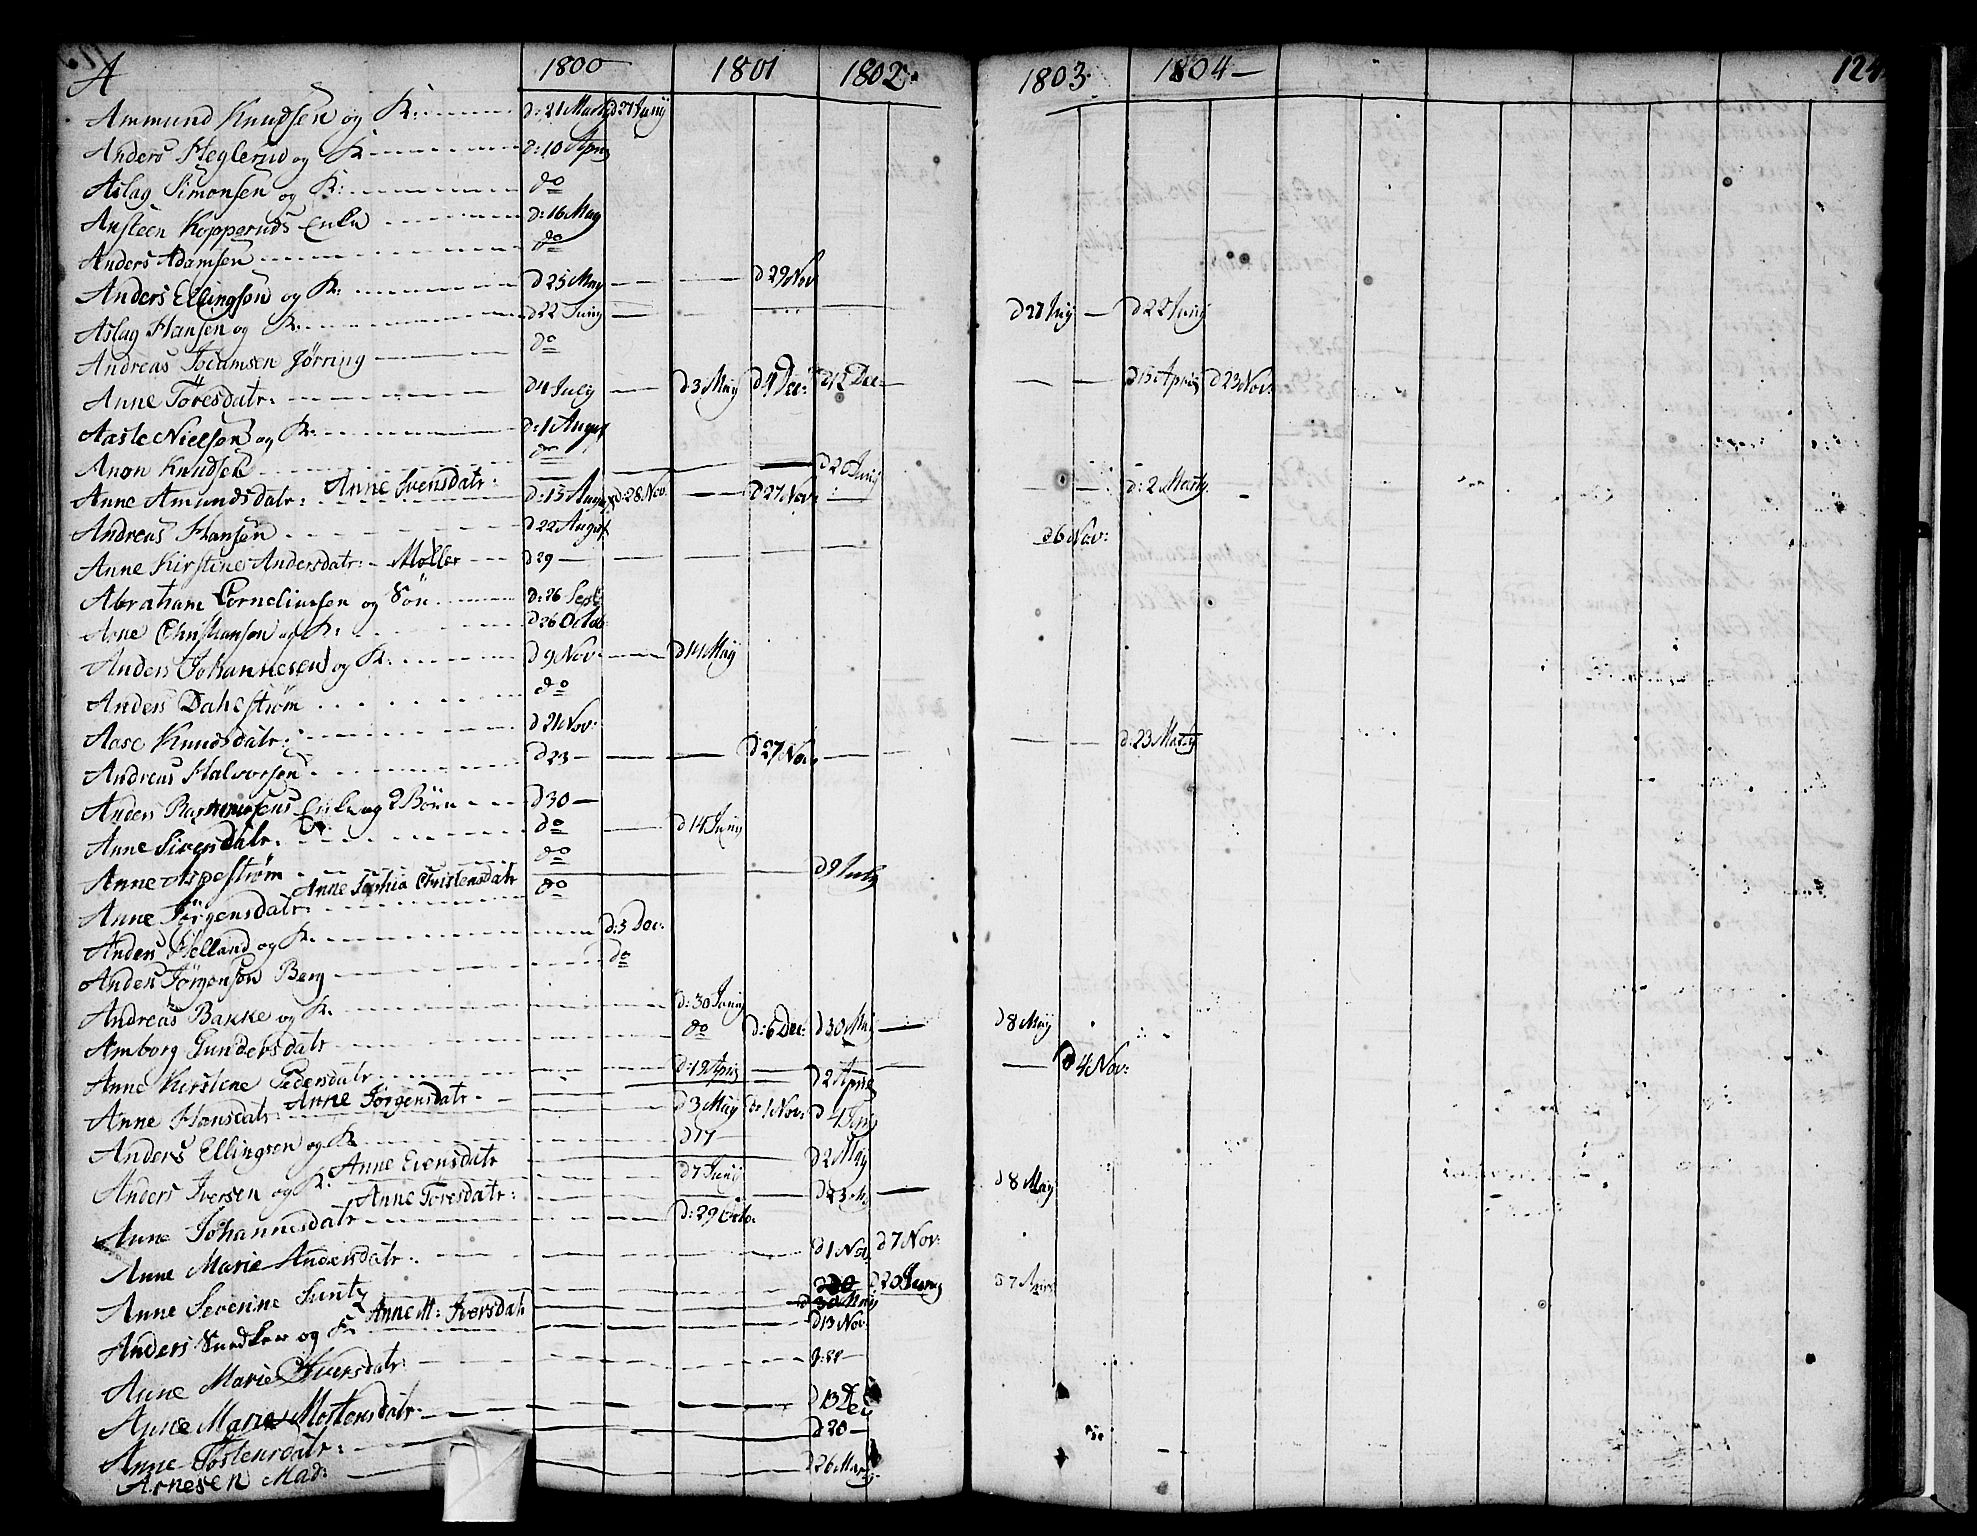 A 1800 1801 1802 1803 1804 124
Ammund Knudsen og K: d: 21 Marty d 27 Junij
Anders Heglerud og K d: 10 April
Aslag Simonsen og K: do
Ansteen Kopperuds Enke d: 16 May
Anders Adamsen do
Anders Ellingsen og K: d 25 May — — d 29 Nov
Aslag Hansen og K. d 22 Junij — — d 27 Junij — d 22 Junij
Andreas Joramsen Jørring do
Anne Toresdatr: d 4 July — d 3 Maij d 4 Dec: d 12 Dec: — — — d 15 April d 23 Nov:
Aasle Nielsen og K: d: 1 August
Anon Knudsen do
Anne Svensdatr: — — d 20 Junij
Anne Amundsdatr: d: 15 August d: 28 Nov. — d 27 Nov: — — — d: 2 Marty
Andreas Hansen d 22 August d 6 Nov:
Anne Kirstine Andersdatr: Møller d 29 —
Abraham Corneliussen og Søn d: 26 Sept
Arne Christiansen og K: d 26 Octob:
Anders Johannesen og K: d 9 Nov — d 14 May
Anders Dahlstrøm do
Aase Knudsdatr: d 21 Nov: — — d: 23 Marty
Andreas Halvorsen d 23 — — — d 27 Nov: — —
Anders Rasmussens Enke og 2 Børn d 30 —
Anne Siversdatr. do — d 14 Junij
Anne Aspestrøm do
Anne Sophia Christensdatr — — d 9 July
Anne Jörgensdatr. do
Anders Helland og K. d: 5 Dec:
Anders Jörgensen Berg do
Andreas Bakke og K. d: 30 Junij
Amborg Gundersdatr do d: 6 Dec: d 30 Maij — d 8 Maij
Anne Kirstene Pedersdatr d: 19 April — — — — d 4 Nov:
Anne Jörgensdatr — — d 2 April
Anne Hansdatr: d 3 Maij do 1 Nov: d 4 Junij
Anders Ellingsen og K d 17 —
Anne Evensdatr — — d 2 Maij
Anders Iversen og K. d 7 Junij d 8 May
Anne Toresdatr: — — d 23 May —
Anne Johannesdatr d: 29 Octb:
Anne Marie Andersdatr: d 1 Nov. d 7 Nov:
Anne Severine Suntz d 20 Junij
Anders Snedker og K d 30 Maij
Anne M: Iversdatr d 13 Nov:
Anne Marie Iversdatr:
Anne Marie Mortensdatr: d 13 Dec
Anne Tostensdatr: d 20 —
Arnesen Mad: d 26 Marty